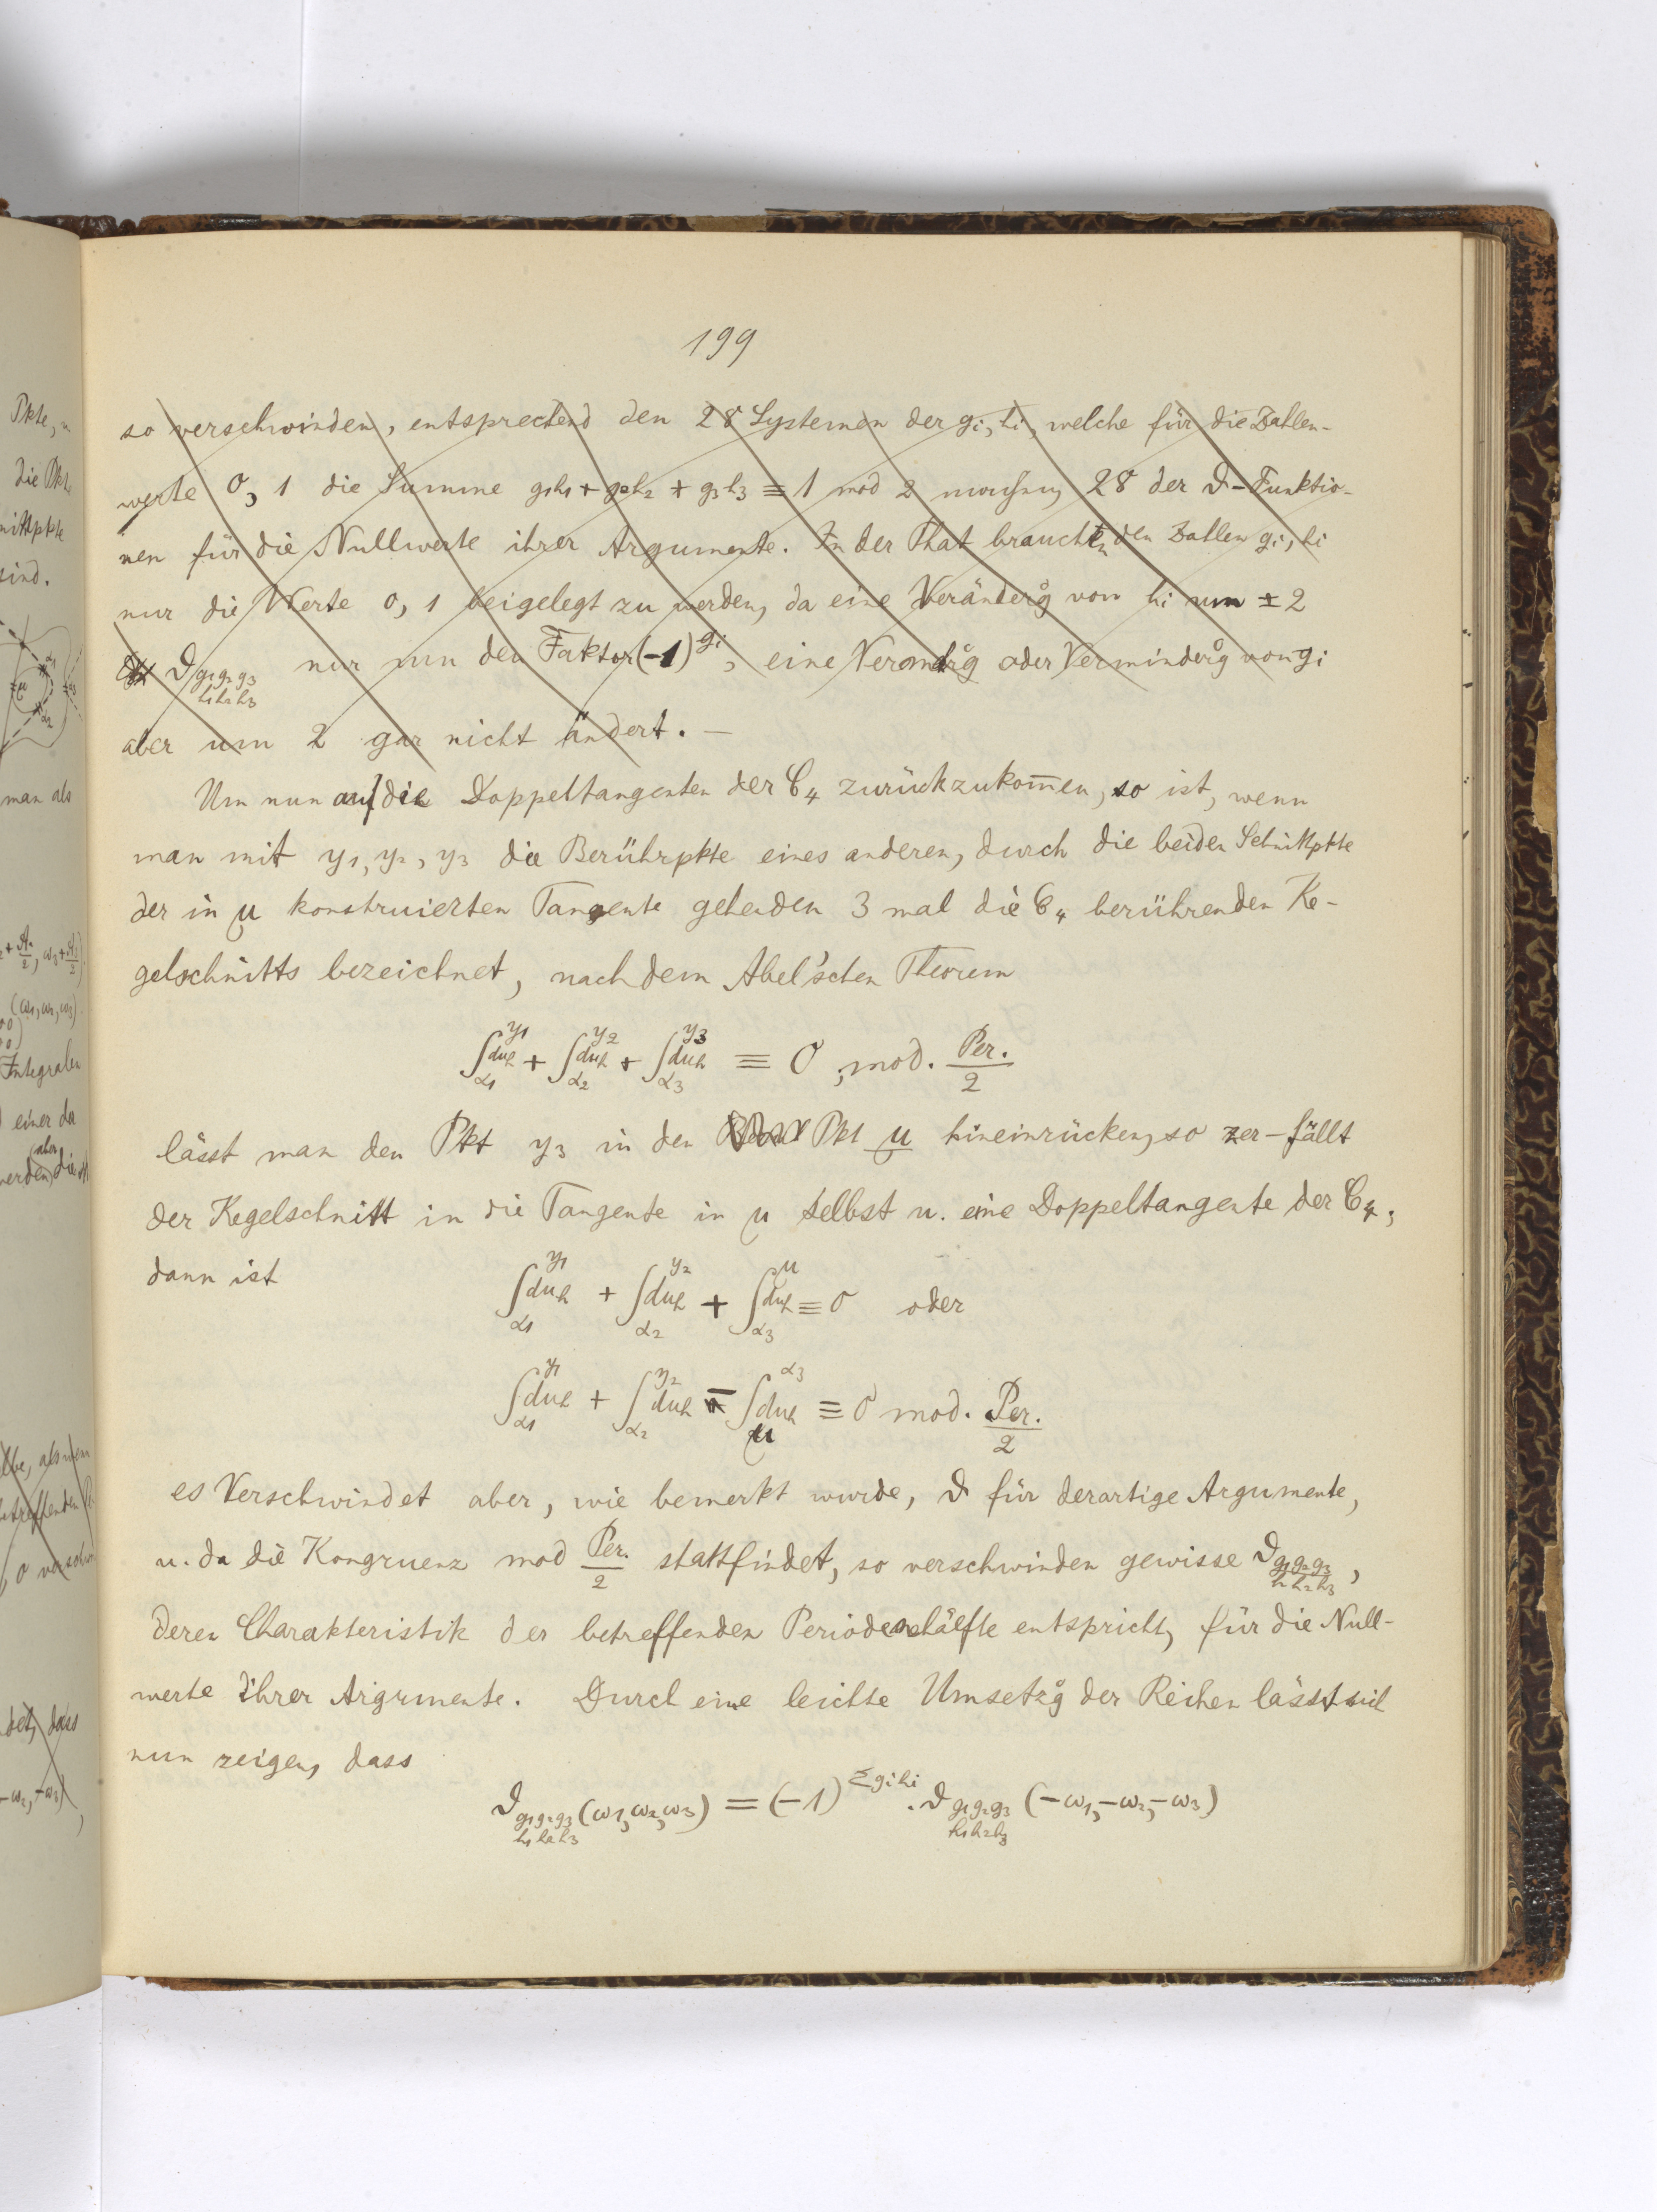 199
so verschwinden, entsprechend den 28 Systemen der gi, hi, welche für die Zahlen-
werte 0, 1 die Summe g1h1 + g2h2 + g3h3 ≡ 1 mod 2 machen, 28 der ϑ-Funktio-
nen für die Nullwerte ihrer Argumente. In der That brauchen den Zahlen gi, hi
nur die Werte 0, 1 beigelegt zu werden, da eine Veränderg von hi um ± 2
ϑ g1g2g3 h1h2h3 nur um den Faktor (-1)^gi, eine Verändrg oder Verminderg von gi
aber um 2 gar nicht ändert. —
Um nun auf die Doppeltangenten der C4 zurückzukom̅en, so ist, wenn
man mit y1, y2, y3 die Berührpkte eines anderen, durch die beiden Schnittpkte
der in μ konstruierten Tangente gehenden 3 mal die C4 berührenden Ke-
gelschnitts bezeichnet, nach dem Abel'schen Theorem
∫_α1^y1 duh + ∫_α2^y2 duh + ∫_α3^y3 duh ≡ 0, mod. Per./2
lässt man den Pkt y3 in den Pkt μ hineinrücken, so zer-fällt
der Kegelschnitt in die Tangente in μ selbst u. eine Doppeltangente der C4;
dann ist ∫_α1^y1 duh + ∫_α2^y2 duh + ∫_α3^μ duh ≡ 0 oder
∫_α1^y1 duh + ∫_α2^y2 duh - ∫_μ^α3 duh ≡ 0 mod. Per./2
es Verschwindet aber, wie bemerkt wurde, ϑ für derartige Argumente,
u. da die Kongruenz mod Per./2 stattfindet, so verschwinden gewisse ϑ g1g2g3 h1h2h3,
deren Charakteristik der betreffenden Periodenhälfte entspricht, für die Null-
werte ihrer Argumente. Durch eine leichte Umsetzg der Reihen lässt sich
nun zeigen, dass
ϑ g1g2g3 h1h2h3 (ω1, ω2, ω3) = (-1)^Σgihi . ϑ g1g2g3 h1h2h3 (-ω1, -ω2, -ω3)